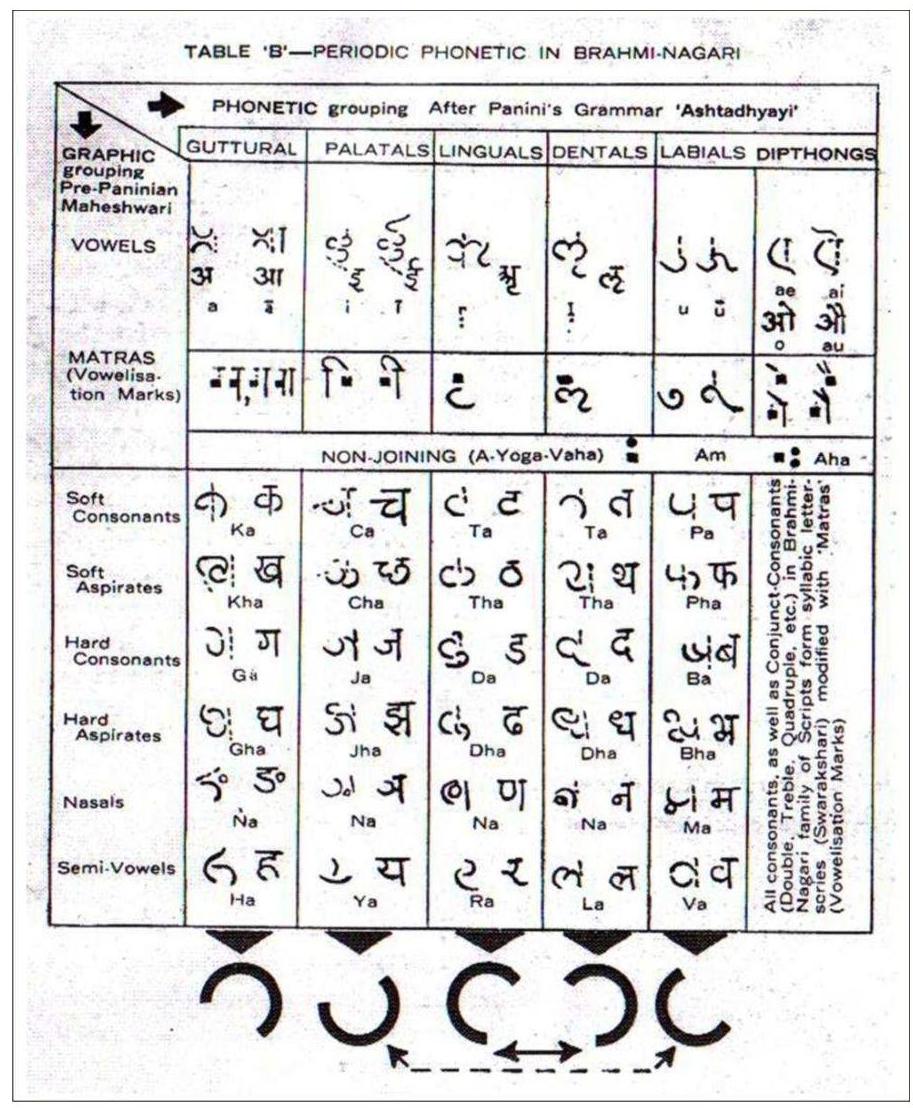 TABLE 'B'—PERIODIC PHONETIC IN BRAHMI-NAGARI
PHONETIC grouping After Panini's Grammar 'Ashtadhyayi'
GRAPHIC
grouping
Pre-Paninian
Maheshwari
GUTTURAL PALATALS LINGUALS DENTALS LABIALS DIPTHONGS
VOWELS
अ आ इ ई ॠ ऌ
a ā i ī u ū
ae ai
ओ औ
o au
MATRAS
(Vowelisa-
tion Marks)
NON-JOINING (A-Yoga-Vaha) Am Aha
Soft
Consonants
क च ट त प
Ka Ca Ta Ta Pa
Soft
Aspirates
ख छ ठ थ फ
Kha Cha Tha Tha Pha
Hard
Consonants
ग ज ड द ब
Ga Ja Da Da Ba
Hard
Aspirates
घ झ ढ ध भ
Gha Jha Dha Dha Bha
Nasals
ङ ञ ण न म
Ṅa Na Na Na Ma
Semi-Vowels
ह य र ल व
Ha Ya Ra La Va
All consonants, as well as Conjunct-Consonants
(Double, Treble, Quadruple, etc.) in Brahmi-
Nagari family of Scripts form syllabic letter-
series (Swarakshari) modified with 'Matras'
(Vowelisation Marks)